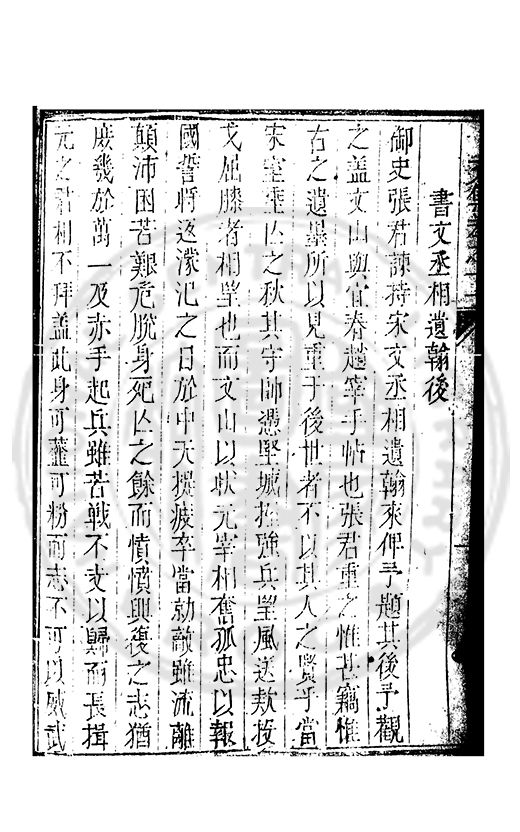 書文丞相遺翰後
御史張君諫持宋文丞相遺翰來俾予題其後予觀
之蓋文山與宜春趙宰手帖也張君重之惟甚竊惟
右之遺墨所以見重于後世者不以其人之賢乎當
宋室垂亾之秋其守帥憑堅城擁強兵望風送欵投
戈屈膝者相望也而文山以狀元宰相奮孤忠以報
國誓將逐濛汜之日於中天提疲卒當勍敵雖流離
顛沛困苦艱危脫身死亾之餘而憤憤興復之志猶
庶幾於萬一及赤手起兵雖苦戰不支以歸而長揖
元之君相不拜蓋此身可虀可粉而志不可以威武